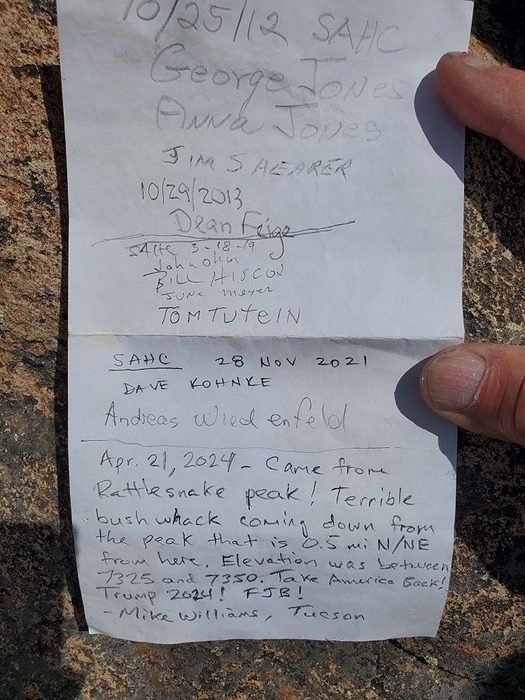 10/25/12 SAHC
George Jones
Anna Jones
JIM SHEARER
10/29/2013
Dean Feige
SAHC 3-18-19
John Ohm
BILL HISCOX
June Meyer
TOM TUTEIN
SAHC 28 NOV 2021
DAVE KOHNKE
Andreas Wiedenfeld
Apr. 21, 2024 - Came from
Rattlesnake peak! Terrible
bushwhack coming down from
the peak that is 0.5 mi N/NE
from here. Elevation was between
7325 and 7350. Take America Back!
Trump 2024! FJB!
- Mike Williams, Tucson